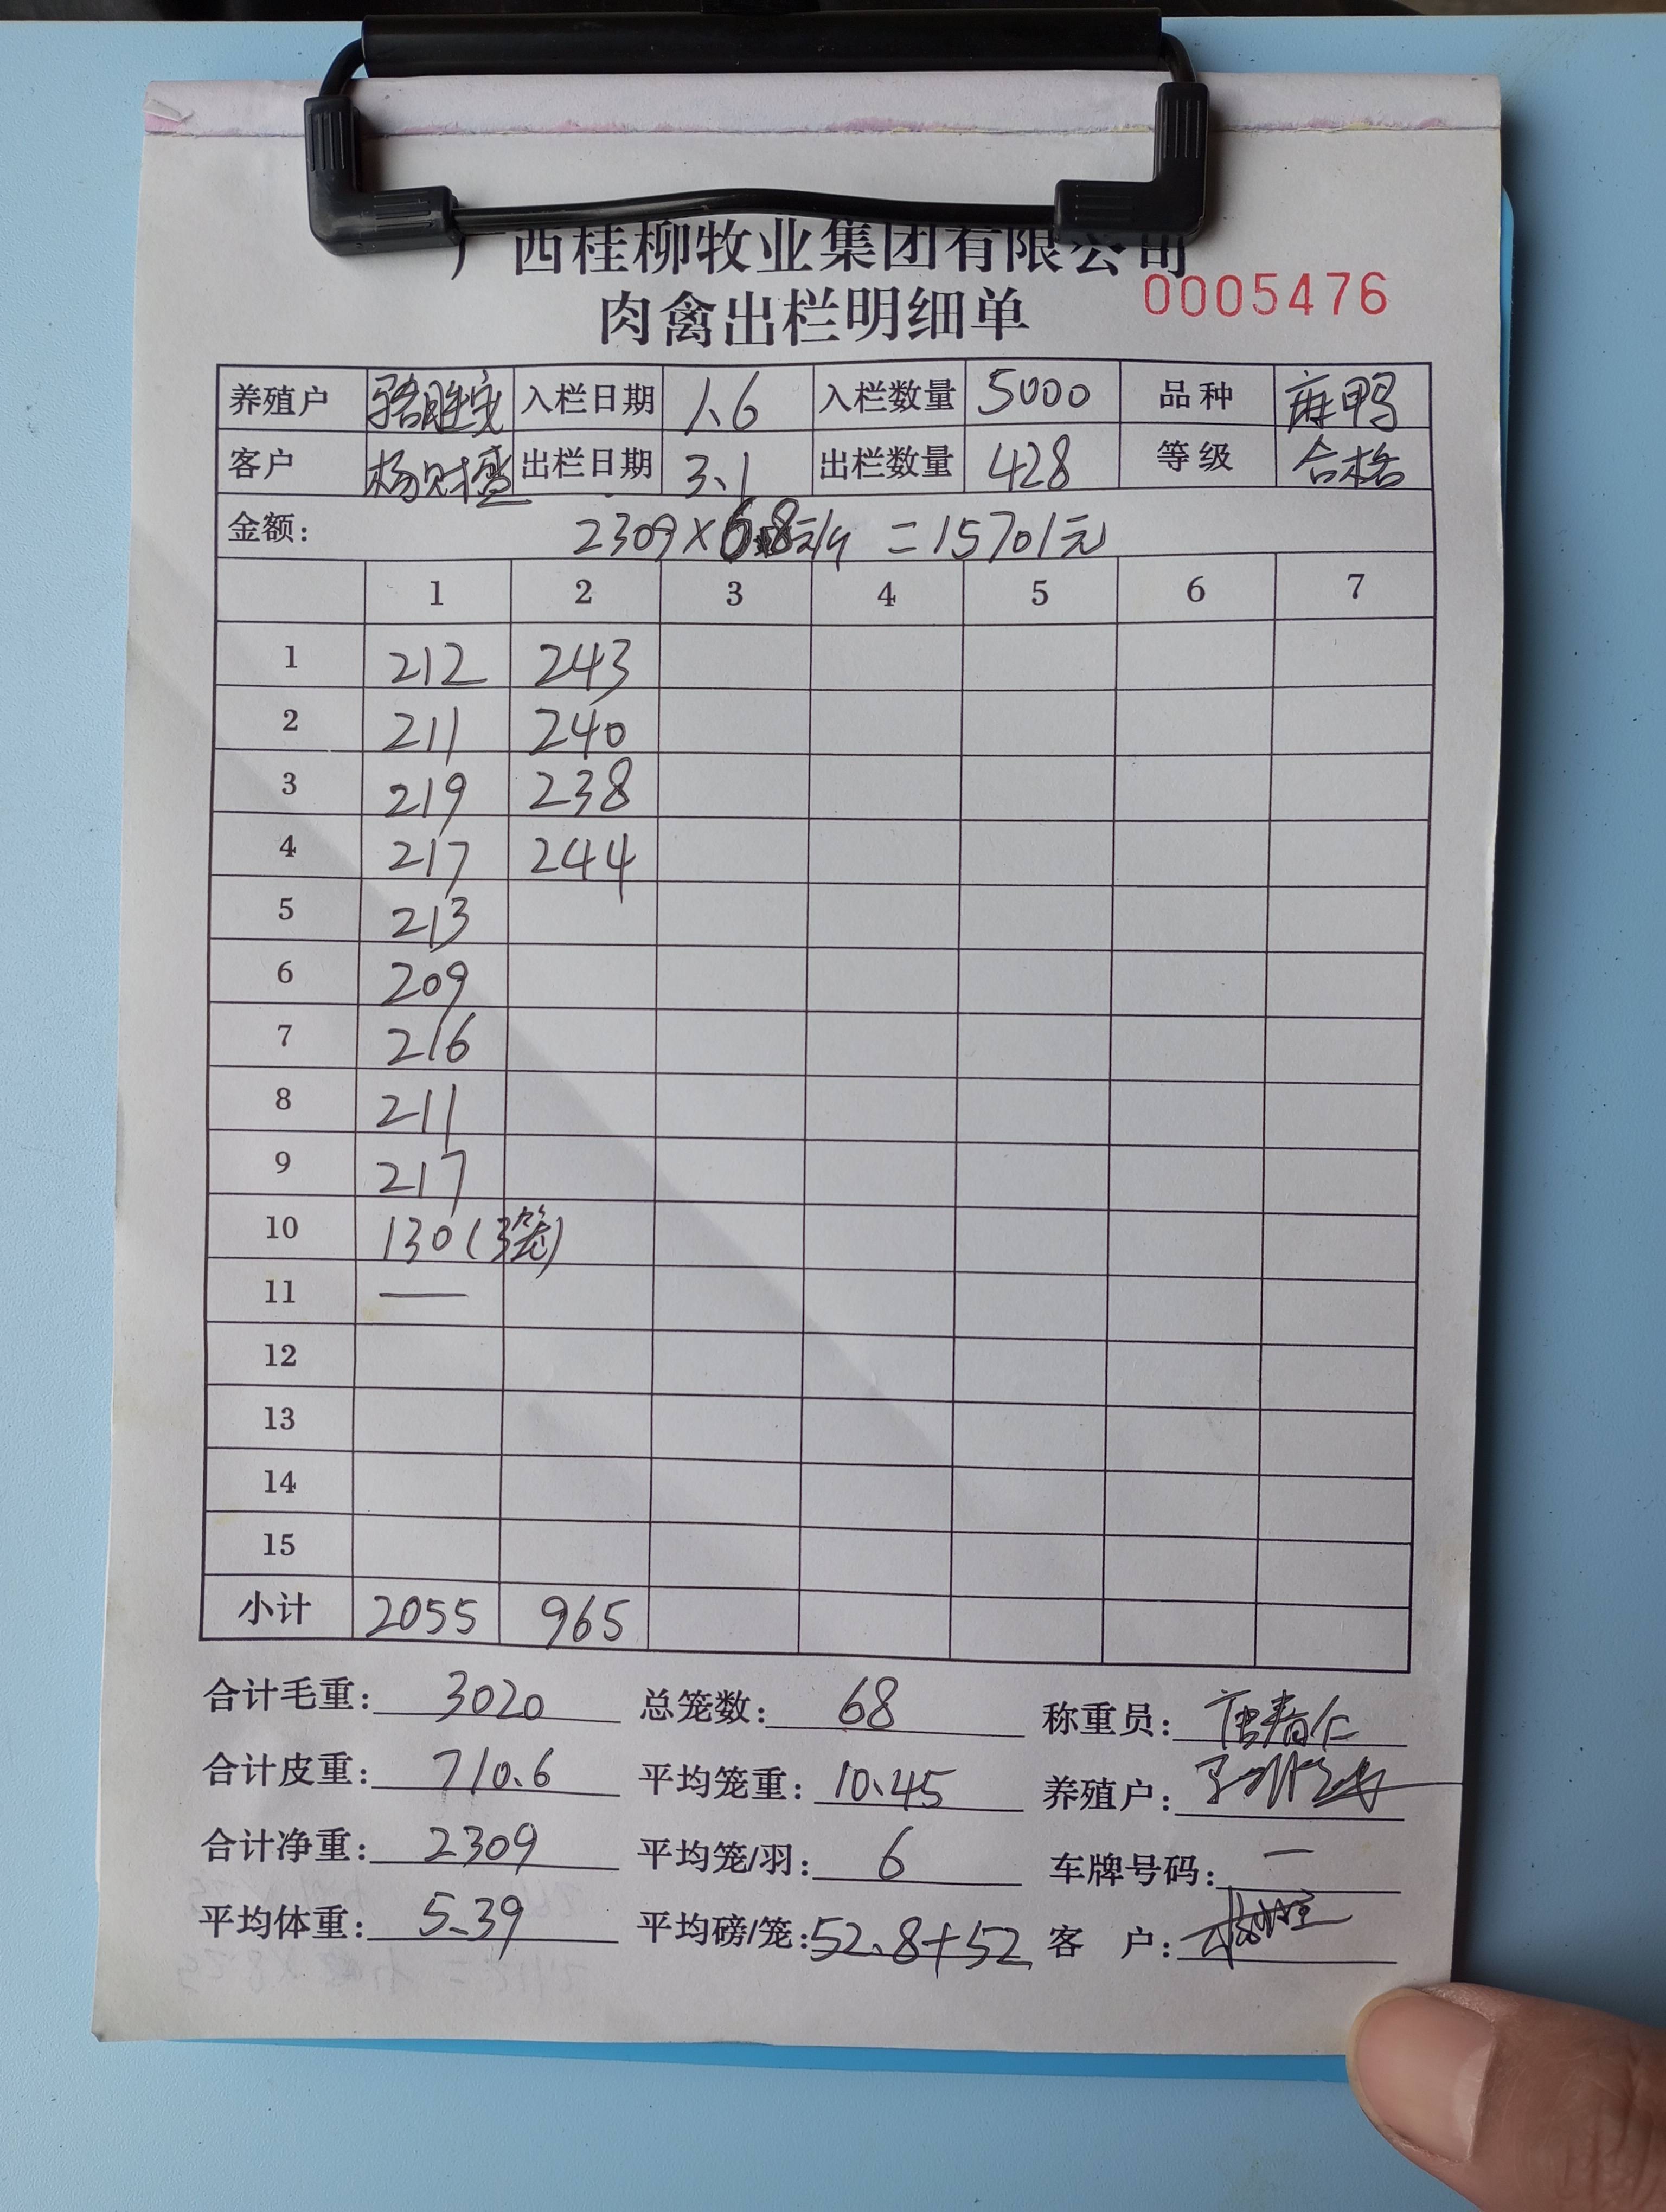 广西桂柳牧业集团有限公司
0005476
肉禽出栏明细单
养殖户 骆胜 入栏日期 1.6 入栏数量 5000 品种 麻鸭
客户 杨财盛 出栏日期 3.1 出栏数量 428 等级 合格
金额: 2309×6.8元/斤 =15701元
1 2 3 4 5 6 7
1 212 243
2 211 240
3 219 238
4 217 244
5 213
6 209
7 216
8 211
9 217
10 130(3笼)
11 —
12
13
14
15
小计 2055 965
合计毛重: 3020 总笼数: 68 称重员: 唐春仁
合计皮重: 710.6 平均笼重: 10.45 养殖户:
合计净重: 2309 平均笼/羽: 6 车牌号码: —
平均体重: 5.39 平均磅/笼: 52.8+52 客 户: